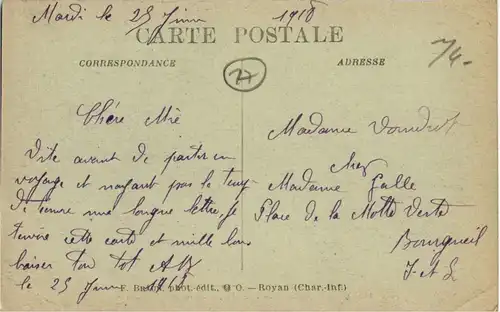 Mardi le 25 Juin 1918
CARTE POSTALE
CORRESPONDANCE
ADRESSE
74-
Chère Mie
Vite avant de partir en
voyage et n'ayant pas le temps
de une longue lettre, je
t'envoie cette carte et mille bons
baiser Ton tot
le 25 Juin 1918
Madame
chez
Madame Galle
Place de la Motte Verte
Bourgueil
I-&-L
F. Braun, phot.-édit., O. — Royan (Char.-Inf.)